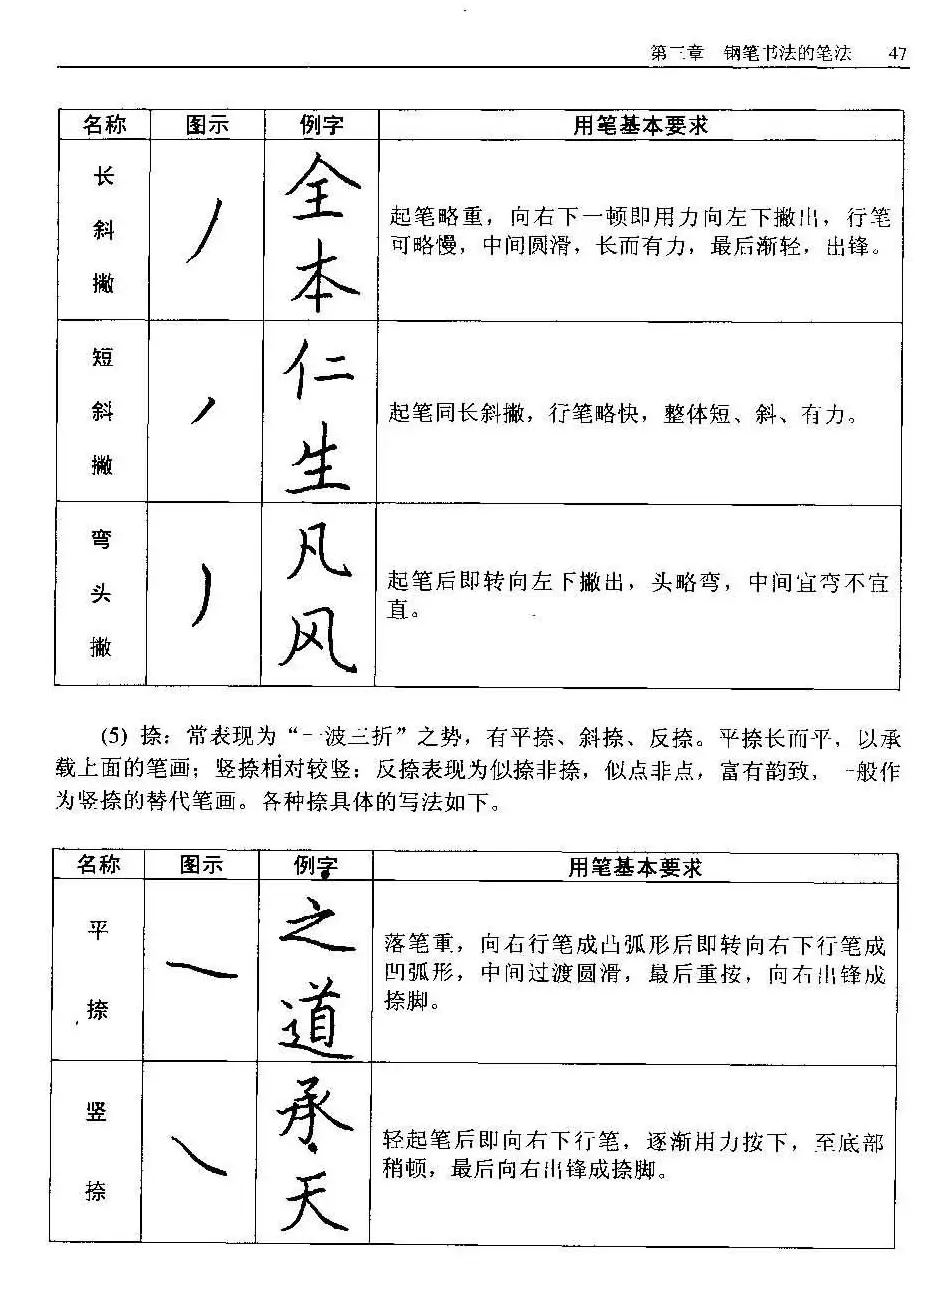 第二章 钢笔书法的笔法 47
名称 图示 例字 用笔基本要求
长斜撇 全本 起笔略重，向右下一顿即用力向左下撇出，行笔
可略慢，中间圆滑，长而有力，最后渐轻，出锋。
短斜撇 仁生 起笔同长斜撇，行笔略快，整体短、斜、有力。
弯头撇 凡风 起笔后即转向左下撇出，头略弯，中间宜弯不宜
直。
(5) 捺：常表现为“一波三折”之势，有平捺、斜捺、反捺。平捺长而平，以承
载上面的笔画；竖捺相对较竖；反捺表现为似捺非捺，似点非点，富有韵致，一般作
为竖捺的替代笔画。各种捺具体的写法如下。
名称 图示 例字 用笔基本要求
平捺 之道 落笔重，向右行笔成凸弧形后即转向右下行笔成
凹弧形，中间过渡圆滑，最后重按，向右出锋成
捺脚。
竖捺 承天 轻起笔后即向右下行笔，逐渐用力按下，至底部
稍顿，最后向右出锋成捺脚。